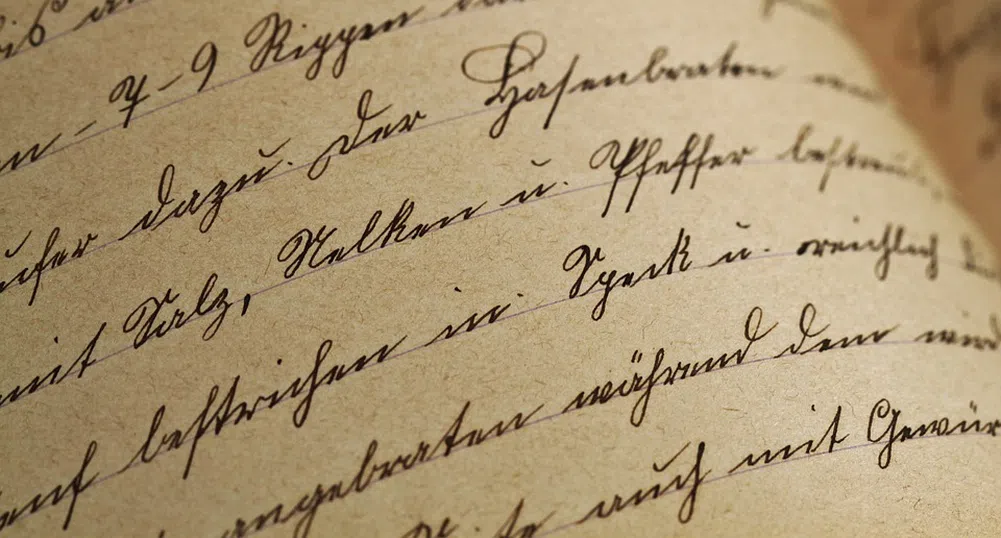 bis
7-9 Rippen
dazu. Der Hasenbraten
mit Salz, Nelken u. Pfeffer bestreut
bestrichen in Speck u. reichlich
angebraten während dem wird
auch mit Gewür